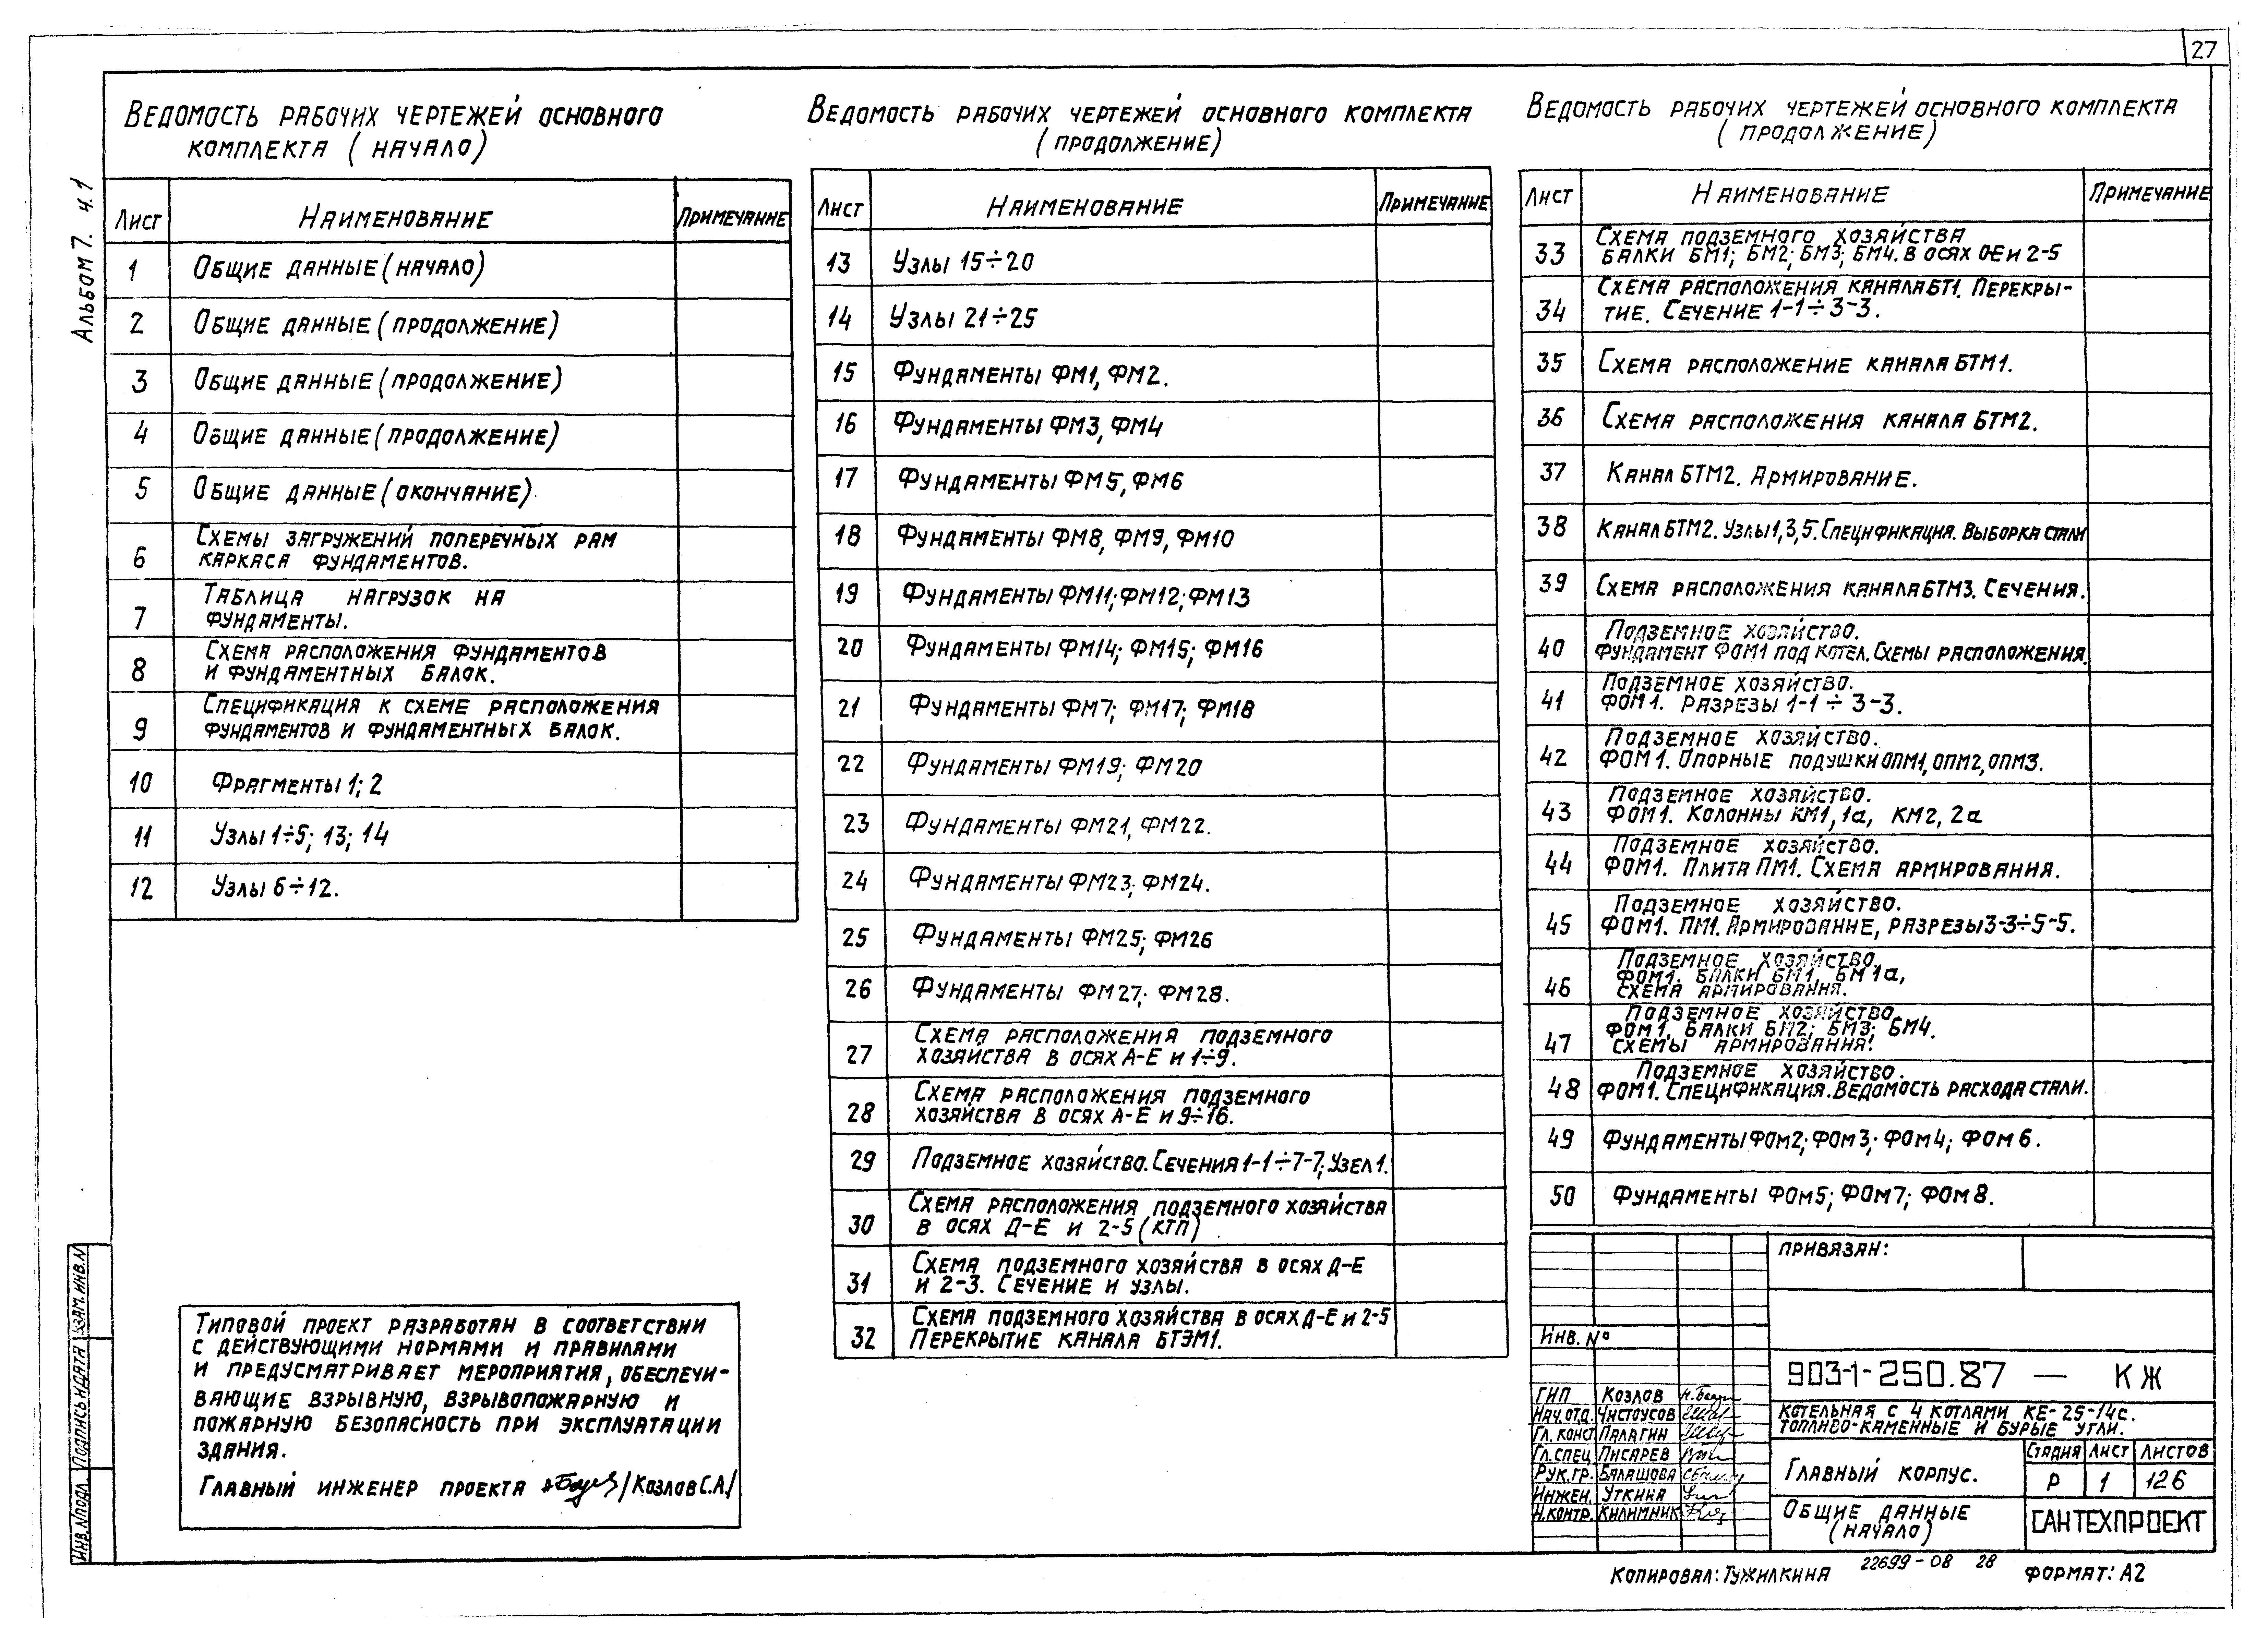 27
Альбом 7. ч.1
Ведомость рабочих чертежей основного
комплекта (начало)
Лист Наименование Примечание
1 Общие данные (начало)
2 Общие данные (продолжение)
3 Общие данные (продолжение)
4 Общие данные (продолжение)
5 Общие данные (окончание)
6 Схемы загружений поперечных рам
каркаса фундаментов.
7 Таблица нагрузок на
фундаменты.
8 Схема расположения фундаментов
и фундаментных балок.
9 Спецификация к схеме расположения
фундаментов и фундаментных балок.
10 Фрагменты 1; 2
11 Узлы 1÷5; 13; 14
12 Узлы 6÷12.
Ведомость рабочих чертежей основного комплекта
(продолжение)
Лист Наименование Примечание
13 Узлы 15÷20
14 Узлы 21÷25
15 Фундаменты ФМ1, ФМ2.
16 Фундаменты ФМ3, ФМ4
17 Фундаменты ФМ5, ФМ6
18 Фундаменты ФМ8, ФМ9, ФМ10
19 Фундаменты ФМ11; ФМ12; ФМ13
20 Фундаменты ФМ14; ФМ15; ФМ16
21 Фундаменты ФМ7; ФМ17; ФМ18
22 Фундаменты ФМ19; ФМ20
23 Фундаменты ФМ21, ФМ22.
24 Фундаменты ФМ23; ФМ24.
25 Фундаменты ФМ25; ФМ26
26 Фундаменты ФМ27; ФМ28.
27 Схема расположения подземного
хозяйства в осях А-Е и 1÷9.
28 Схема расположения подземного
хозяйства в осях А-Е и 9÷16.
29 Подземное хозяйство. Сечения 1-1÷7-7; Узел 1.
30 Схема расположения подземного хозяйства
в осях Д-Е и 2-5 (КТП)
31 Схема подземного хозяйства в осях Д-Е
и 2-3. Сечение и узлы.
32 Схема подземного хозяйства в осях Д-Е и 2-5
Перекрытие канала БТЭМ1.
Ведомость рабочих чертежей основного комплекта
(продолжение)
Лист Наименование Примечание
33 Схема подземного хозяйства
Балки БМ1; БМ2; БМ3; БМ4. в осях и 2-5
34 Схема расположения канала БТ1. Перекры-
тие. Сечение 1-1÷3-3.
35 Схема расположение канала БТМ1.
36 Схема расположения канала БТМ2.
37 Канал БТМ2. Армирование.
38 Канал БТМ2. Узлы 1, 3, 5. Спецификация. Выборка стали
39 Схема расположения канала БТМ3. Сечения.
40 Подземное хозяйство.
Фундамент ФОМ1 под котел. Схемы расположения.
41 Подземное хозяйство.
ФОМ1. Разрезы 1-1÷3-3.
42 Подземное хозяйство.
ФОМ1. Опорные подушки ОПМ1, ОПМ2, ОПМ3.
43 Подземное хозяйство.
ФОМ1. Колонны КМ1, 1а, КМ2, 2а
44 Подземное хозяйство.
ФОМ1. Плита ПМ1. Схема армирования.
45 Подземное хозяйство.
ФОМ1. ПМ1. Армирование, разрезы 3-3÷5-5.
46 Подземное хозяйство.
ФОМ1. Балки БМ1, БМ1а,
схема армирования.
47 Подземное хозяйство.
ФОМ1. Балки БМ2; БМ3; БМ4.
Схемы армирования.
48 Подземное хозяйство.
ФОМ1. Спецификация. Ведомость расхода стали.
49 Фундаменты ФОМ2; ФОМ3; ФОМ4; ФОМ6.
50 Фундаменты ФОМ5; ФОМ7; ФОМ8.
Типовой проект разработан в соответствии
с действующими нормами и правилами
и предусматривает мероприятия, обеспечи-
вающие взрывную, взрывопожарную и
пожарную безопасность при эксплуатации
здания.
Главный инженер проекта /Козлов С.А./
Инв. N подл. Подпись и дата Взам. инв. N
Привязан:
Инв. №
903-1-250.87 — КЖ
Котельная с 4 котлами КЕ-25-14с.
Топливо-каменные и бурые угли.
ГИП Козлов
Нач. отд. Чистоусов
Гл. конст Палагин
Гл. спец Писарев
Рук. гр. Балашова
Инжен. Уткина
Н. контр. Килимник
Главный корпус.
Стадия Лист Листов
Р 1 126
Общие данные
(начало)
САНТЕХПРОЕКТ
Копировал: Тужилкина 22699-08 28 Формат: А2